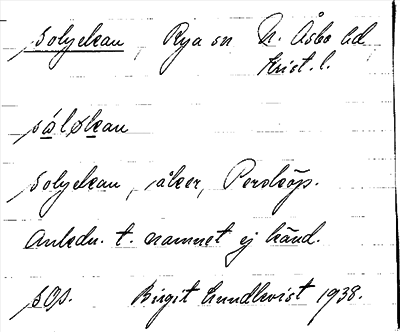 Solyckan, Rya sn N. Åsbo hd,
Krist. l.
sålykan
Solyckan, åker, Perstorp.
Anledn. t. namnet ej känd.
sOp. Birgit Lundkvist 1938.